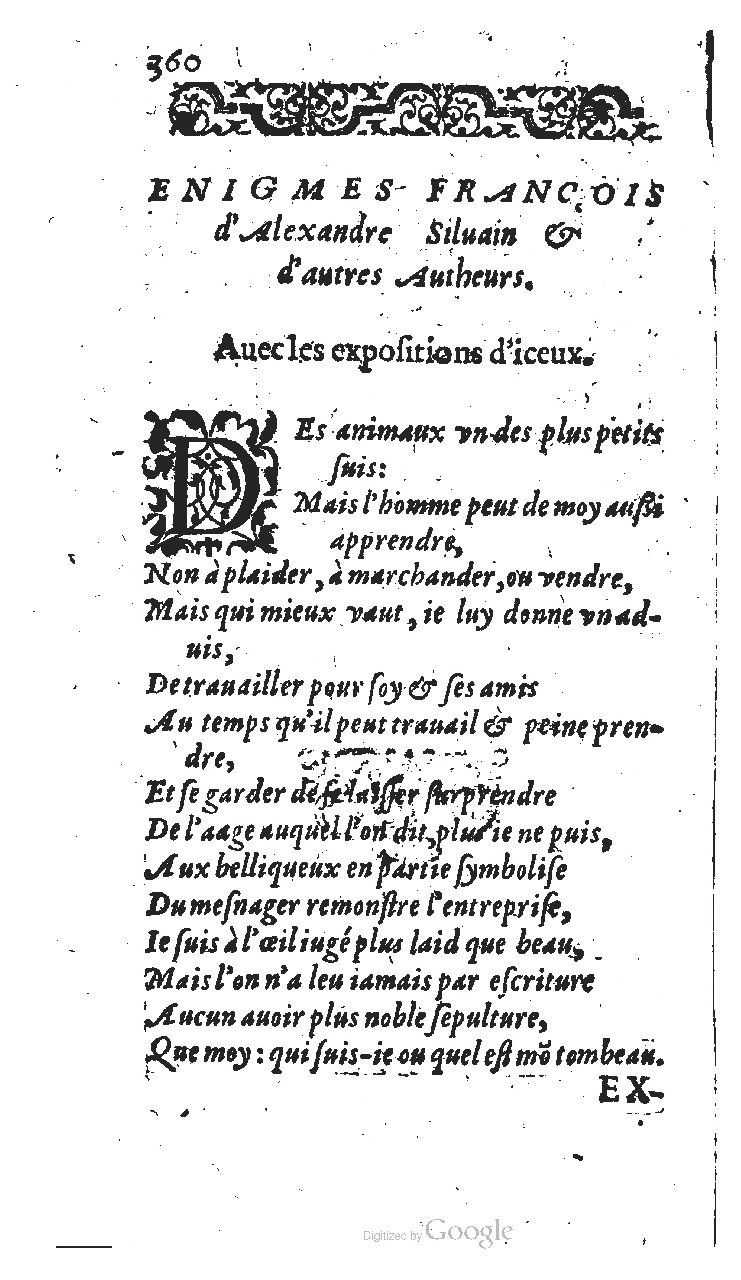 360
ENIGMES FRANÇOIS
d'Alexandre Siluain &
d'autres Autheurs.
Auec les expoſitions d'iceux.
DEs animaux vn des plus petits
ſuis:
Mais l'homme peut de moy auſſi
apprendre,
Non à plaider, à marchander, ou vendre,
Mais qui mieux vaut, ie luy donne vn ad-
uis,
De trauailler pour ſoy & ſes amis
Au temps qu'il peut trauail & peine pren-
dre,
Et ſe garder de ſe laiſſer ſurprendre
De l'aage auquel l'on dit, plus ie ne puis,
Aux belliqueux en partie ſymboliſe
Du meſnager remonſtre l'entrepriſe,
Ie ſuis à l'œil iugé plus laid que beau,
Mais l'on n'a leu iamais par eſcriture
Aucun auoir plus noble ſepulture,
Que moy: qui ſuis-ie ou quel eſt mõ tombeau.
EX-
Digitized by Google